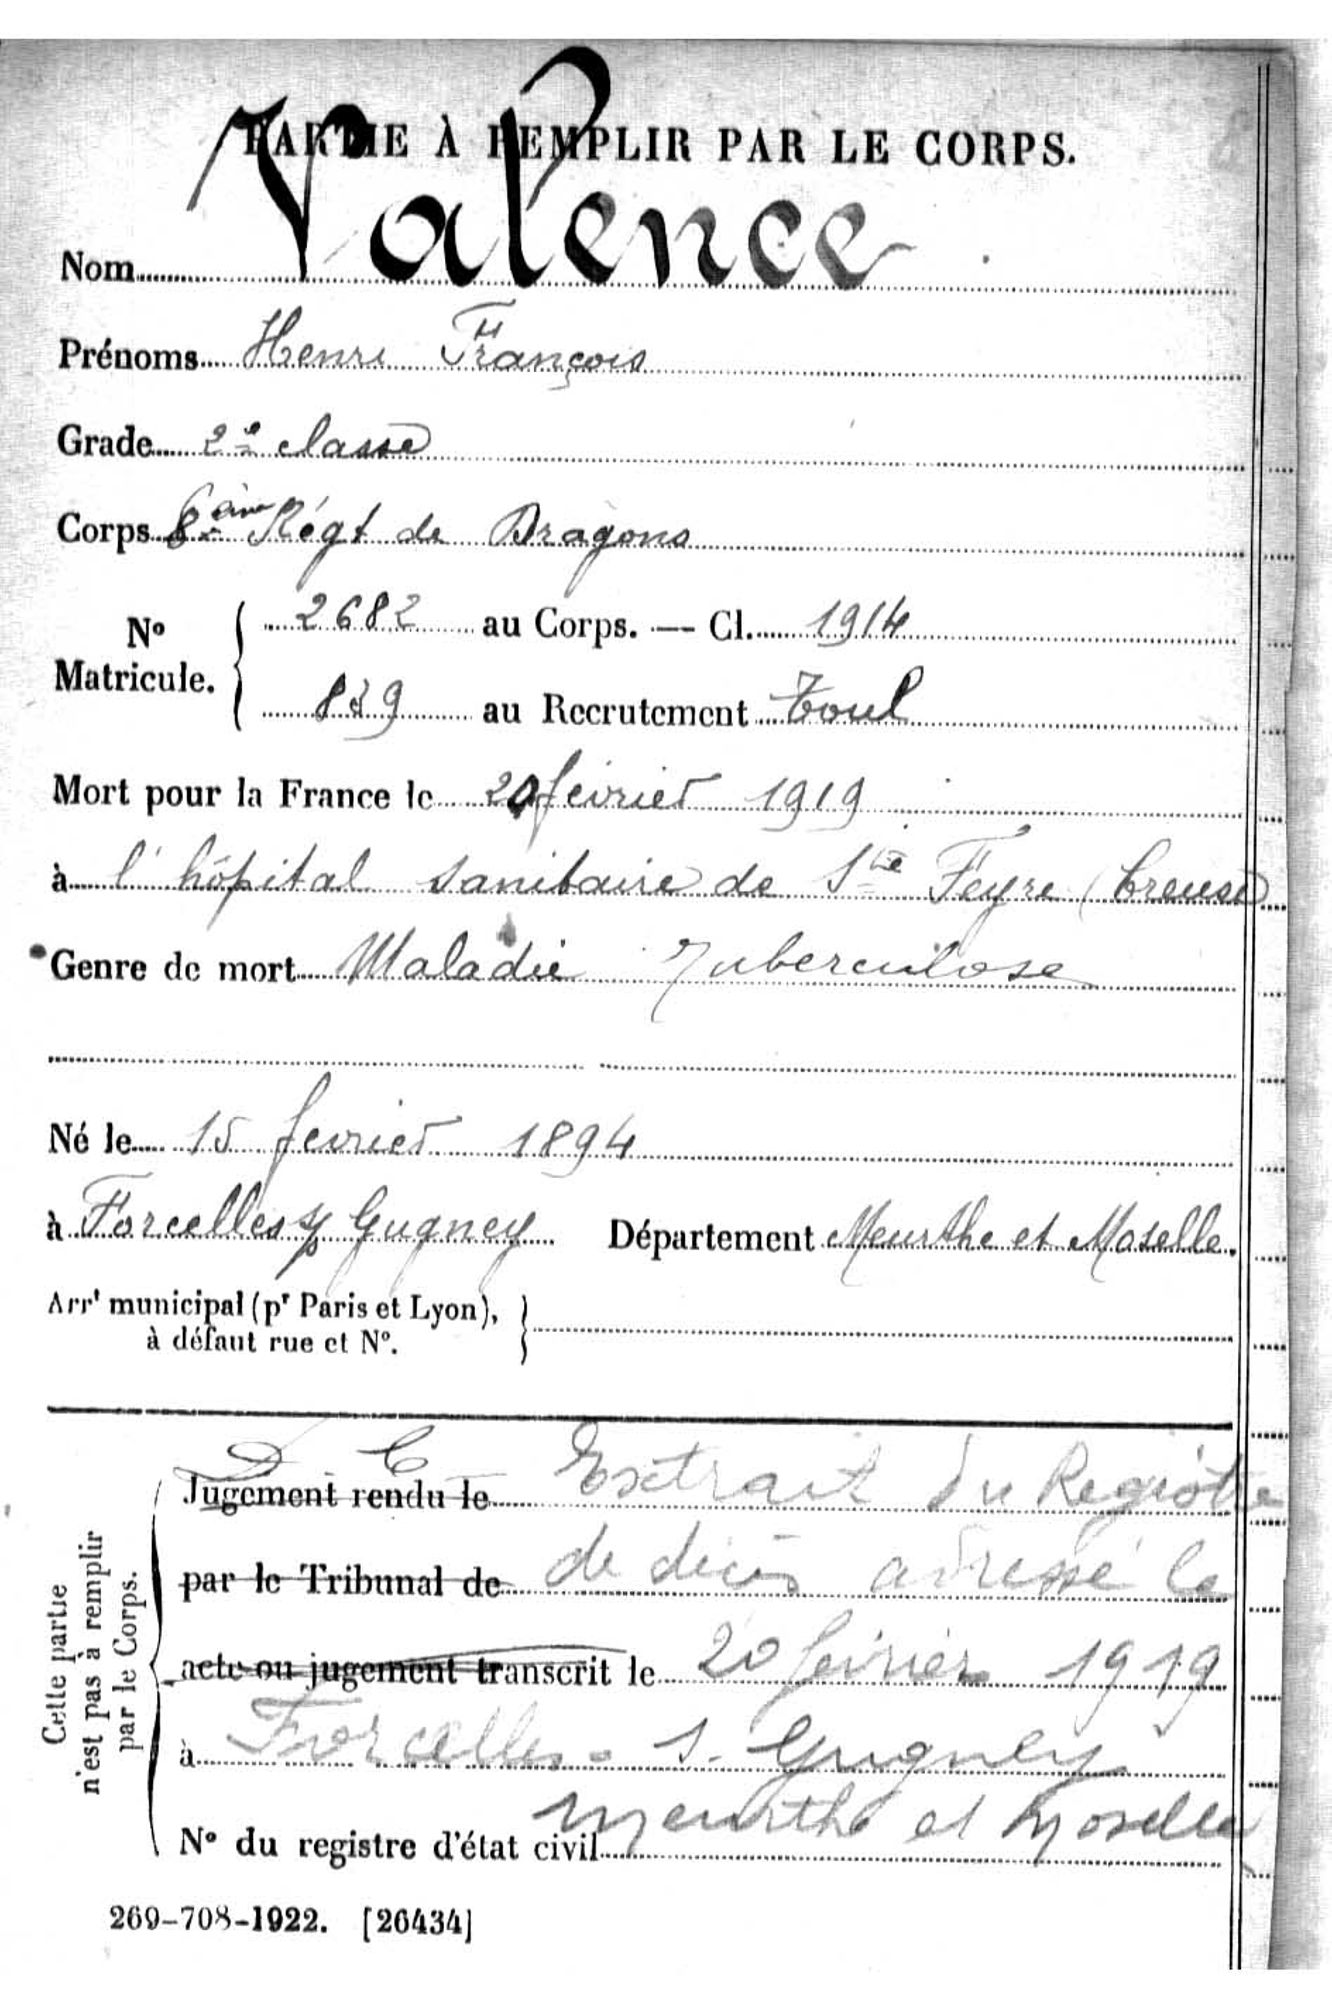 PARTIE À REMPLIR PAR LE CORPS.
Nom Valence
Prénoms Henri François
Grade 2e classe
Corps 8ème Régt de Dragons
No Matricule. 2682 au Corps. — Cl. 1914
829 au Recrutement Toul
Mort pour la France le 20 février 1919
à l'hôpital sanitaire de Ste Feyre (Creuse)
Genre de mort Maladie Tuberculose
Né le 15 février 1894
à Forcelles s/ Gugney Département Meurthe et Moselle.
Arrt municipal (pr Paris et Lyon),
à défaut rue et No.
D C
Jugement rendu le Extrait du Registre
par le Tribunal de de décès adressé le
acte ou jugement transcrit le 20 février 1919
à Forcelles - s. Gugney
Meurthe et Moselle
No du registre d'état civil
Cette partie
n'est pas à remplir
par le Corps.
269-708-1922. [26434]